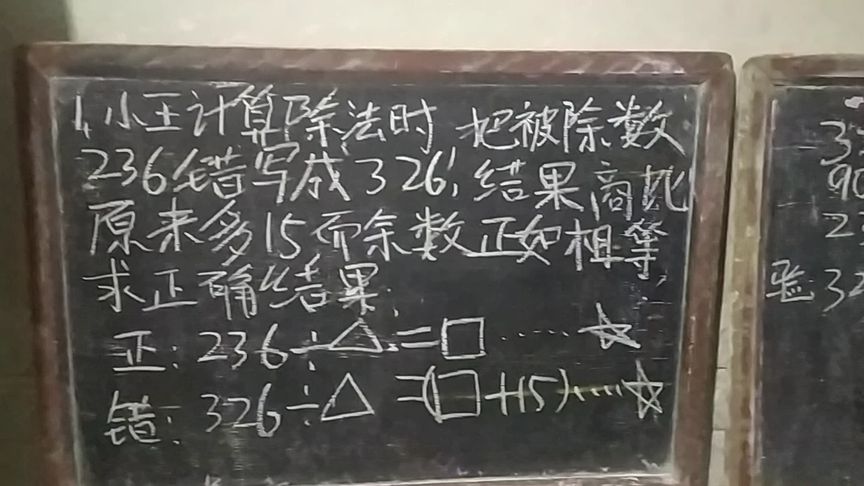 1、小王计算除法时 把被除数
236错写成326，结果商比
原来多15而余数正好相等，
求正确结果.
正：236÷△=□……☆
错：326÷△=(□+15)……☆
32
90
2
验：32